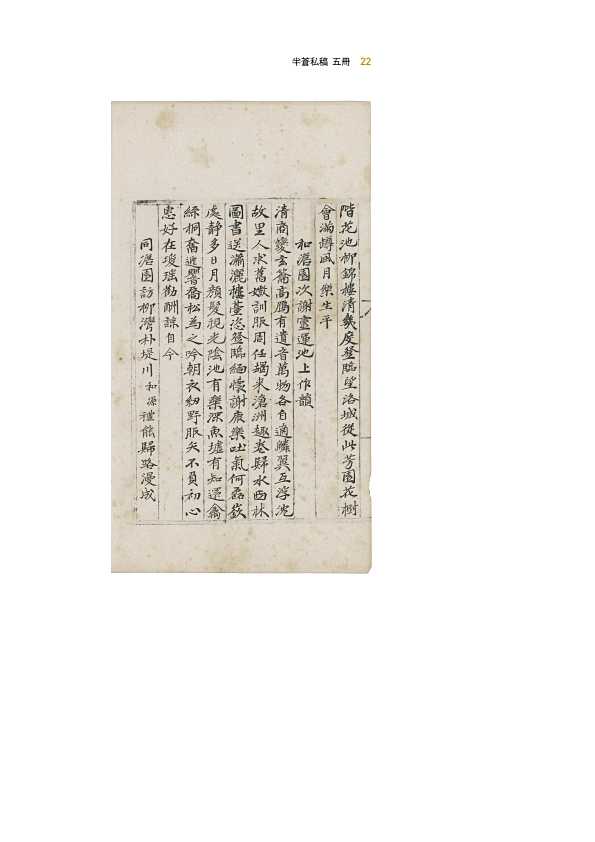 半蒼私稿 五冊 22
階花池柳錦樓清幾度登臨望洛城從此芳園花樹
會滿樽風月樂生平
和澹園次謝靈運池上作韻
清商變玄籥高鴈有遺音萬物各自適鱗翼互浮沈
故里人求舊嫩訓服周任朅來滄洲趣老歸水西林
圖書送瀟灑樓臺恣登臨緬懷謝康樂吐氣何磊嶔
處靜多日月顏髮視光陰池有樂深魚墟有知還禽
絲桐奮逃響喬松為之吟朝衣紉野服矢不負初心
惠好在瓊瑤勸酬諒自今
同澹園訪柳灣朴堤川和源禮熊歸路漫成